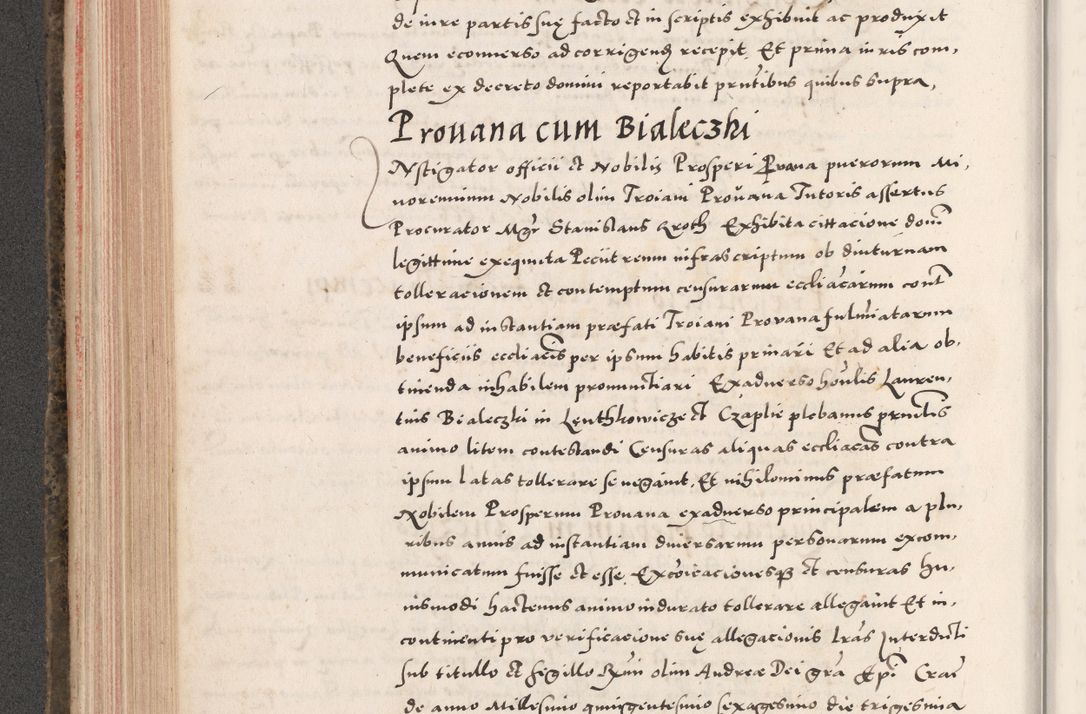 de iure partis suę facto et in scriptis exhibuit ac produxit
Quem econuerso ad corrigendum recepit, Et prima iuris com,
plete ex decreto domini reportabit prntibus quibus supra,
Prouana cum Bialeczki
INstigator officii et Nobilis Prosperi Prouana puerorum Mi,
norennium Nobilis olim Troiani Prouana Tutoris assertus
Procurator Mgr Stanislaus Kroth Exhibita cittacione domi
legittime exequuta Peciit reum infrascriptum ob diuturnam
tolleracionem et contemptum censurarum eccliacarum cont
ipsum ad instantiam præfati Troiani Prouana fulminatarum
beneficiis eccliacis per ipsum habitis priuari Et ad alia ob,
tinenda inhabilem pronunctiari Exaduerso honlis Lauren,
tius Bialeczki in Lenthkowicze et Czaplie plebanus prntlis
animo litem contestandi Censuras aliquas eccliacas contra
ipsum latas tollerare se negauit, Et nihilominus præfatum
Nobilem Prosperum Prouana exaduerso principalem a plu,
ribus annis ad instantiam diuersarum personarum excom,
municatum fuisse et esse, Excoicacionesque et censuras hu,
iusmodi hactenus animo indurato tollerare allegauit Et in,
continenti pro verificacione suę allegacionis lras Interdicti
sub titullo et sigillo Rmi olim Andreæ Dei gra Epi Crac
de anno Millesimo quingentesimo sexagesimo die trigesima